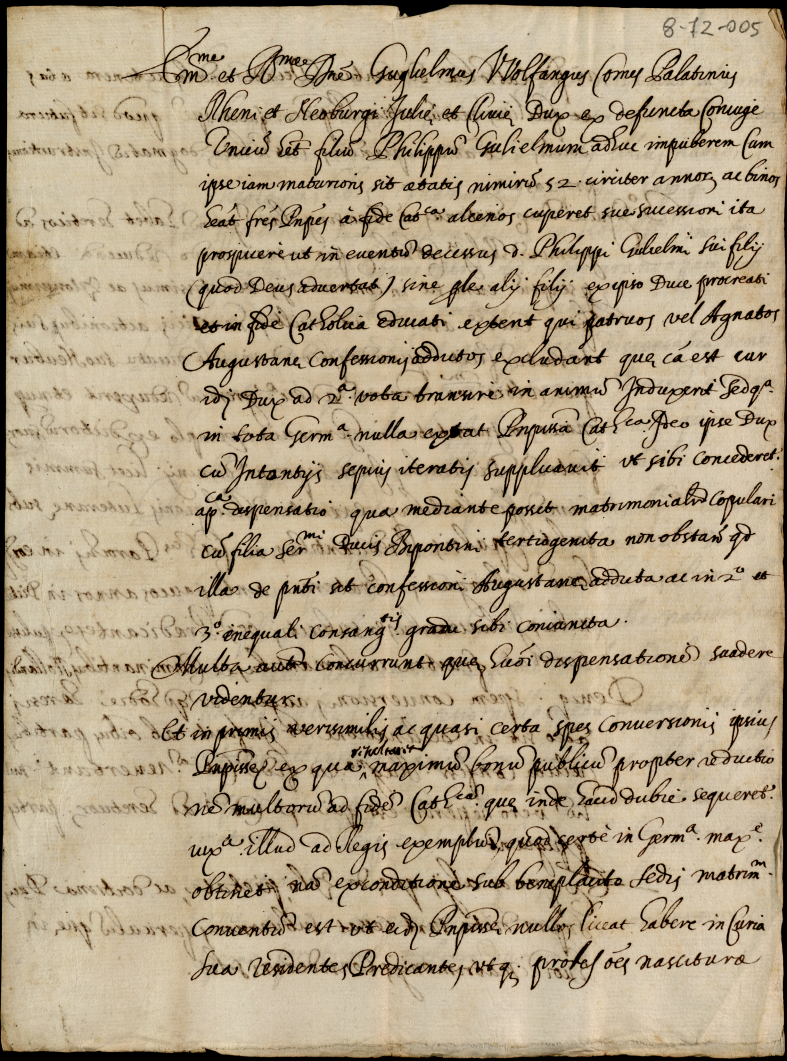 8-72-005
Em.me et R.mee Dnē Guglielmus Wolfangus Comes Palatinus
Rheni et Neoburgi Julię et Clivię Dux ex defuncta Coniuge
Unicū Het filiū Philippū Gulielmum adhuc impuberem Cum
ipse iam maturioris sit ætatis nimirū 52 circiter annorz ac binos
Heāt frēs Pnpēs à fide Cat.ca alienos cuperet suę sucessioni ita
prospicere ut in eventū decessus d. Philippi Gulielmi sui filij
(quod Deus advertat) sine ple alij filij ex ipso Duce procreati
et in fide Catholica educati extent qui patruos vel Agnatos
Augustanę Confessionis addictos excludant quę cā est cur
idz Dux ad 2.a vota transire in animū Induxerit Sed q.a
in tota Germ.a nulla extat Pnpissā Cat.hca Ideo ipse Dux
cū Instantijs sepius iteratis supplicavit ut sibi concederet.r
ap.ca dispensatio qua mediante possit matrimonialr Copulari
cū filia Ser.mi Ducis Bipontini tertiogenita non obstān qd
illa de pnti sit confessioni Augustanę addicta ac in 2.o et
3.o inequali consang.tis gradu sibi coniuncta.
Multa autē concurrunt quę Huōi dispensationē suadere
videntur
Et in primis verisimilis ac quasi certa spes Conversionis ipsius
Pnpissę ex qua resultarit maximū bonū publicū propter reductio
nē multorū ad fidē Cat.hcā quę inde Haud dubie sequeret.r
iux.a illud ad Regis exemplū, quod certè in Germ.a max.e
obtinet, nā ex conditione sub beneplacito Sedis matrim.m
Conventū est ut eidz Pnpissę nullos liceat habere in Curia
sua residentes Predicantes, ut qz proles oēs nascituræ